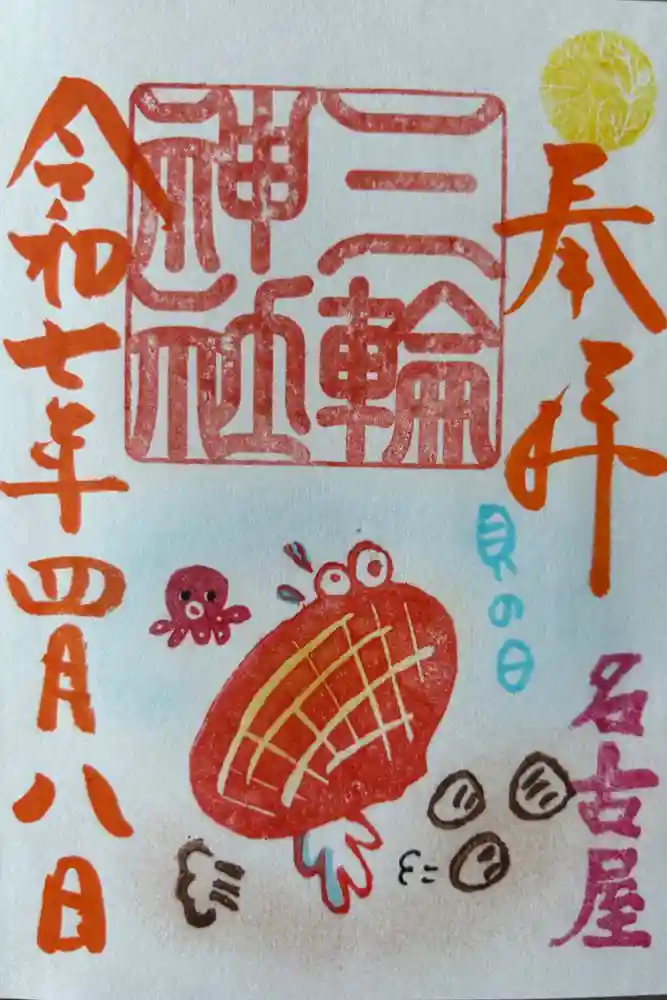 奉拝
三輪
神社
貝の日
名古屋
令和七年四月八日